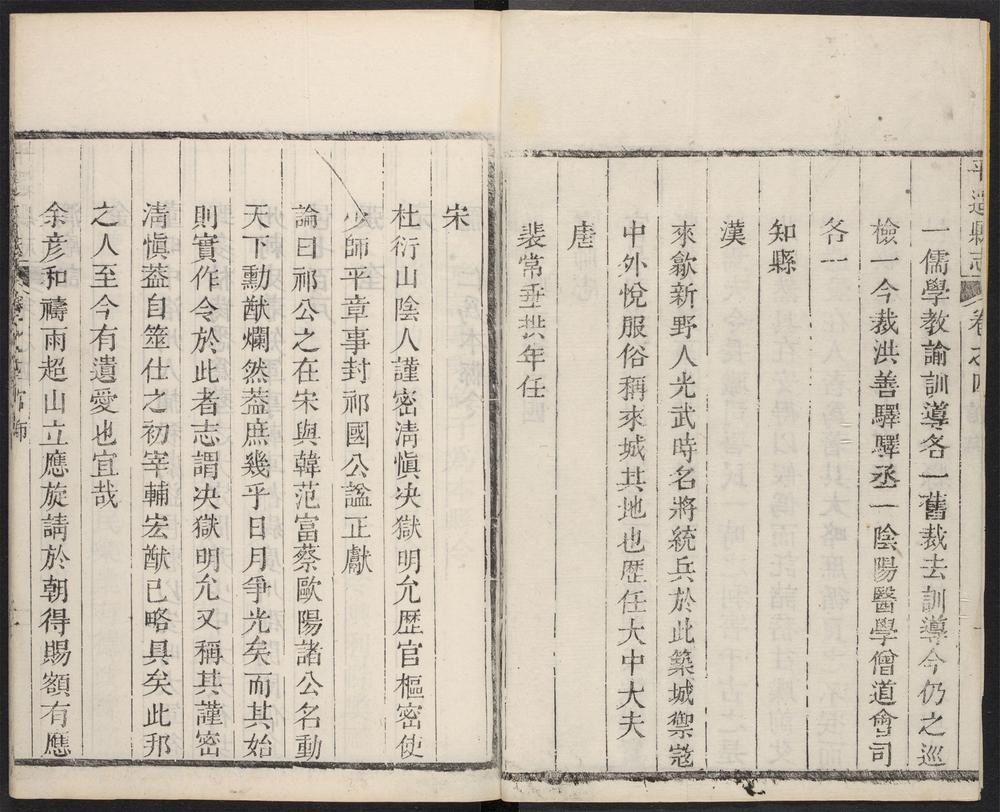 平遥縣志 卷之四
一儒學教諭訓導各一舊裁去訓導今仍之巡
檢一今裁洪善驛驛丞一陰陽醫學僧道會司
各一
知縣
漢
來歙新野人光武時名將統兵於此築城禦寇
中外悅服俗稱來城其地也歷任大中大夫
唐
裴常垂拱年任
宋
杜衍山陰人謹密清愼决獄明允歷官樞密使
少師平章事封祁國公謚正獻
論曰祁公之在宋與韓范富蔡歐陽諸公名動
天下勳猷爛然葢庶幾乎日月爭光矣而其始
則實作令於此者志謂决獄明允又稱其謹密
清愼葢自筮仕之初宰輔宏猷已略具矣此邦
之人至今有遺愛也宜哉
余彦和禱雨超山立應旋請於朝得賜額有應